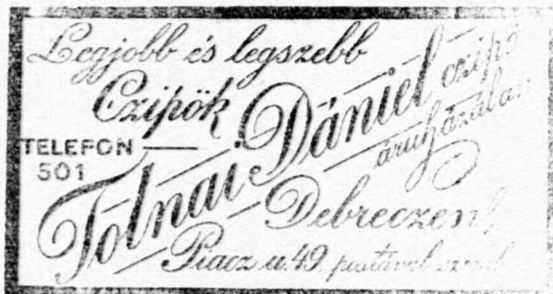 Legjobb és legszebb
Czipők
TELEFON
501
Tolnai Dániel czipő
áruházában
Debreczen!
Piacz u. 49. postával szemb